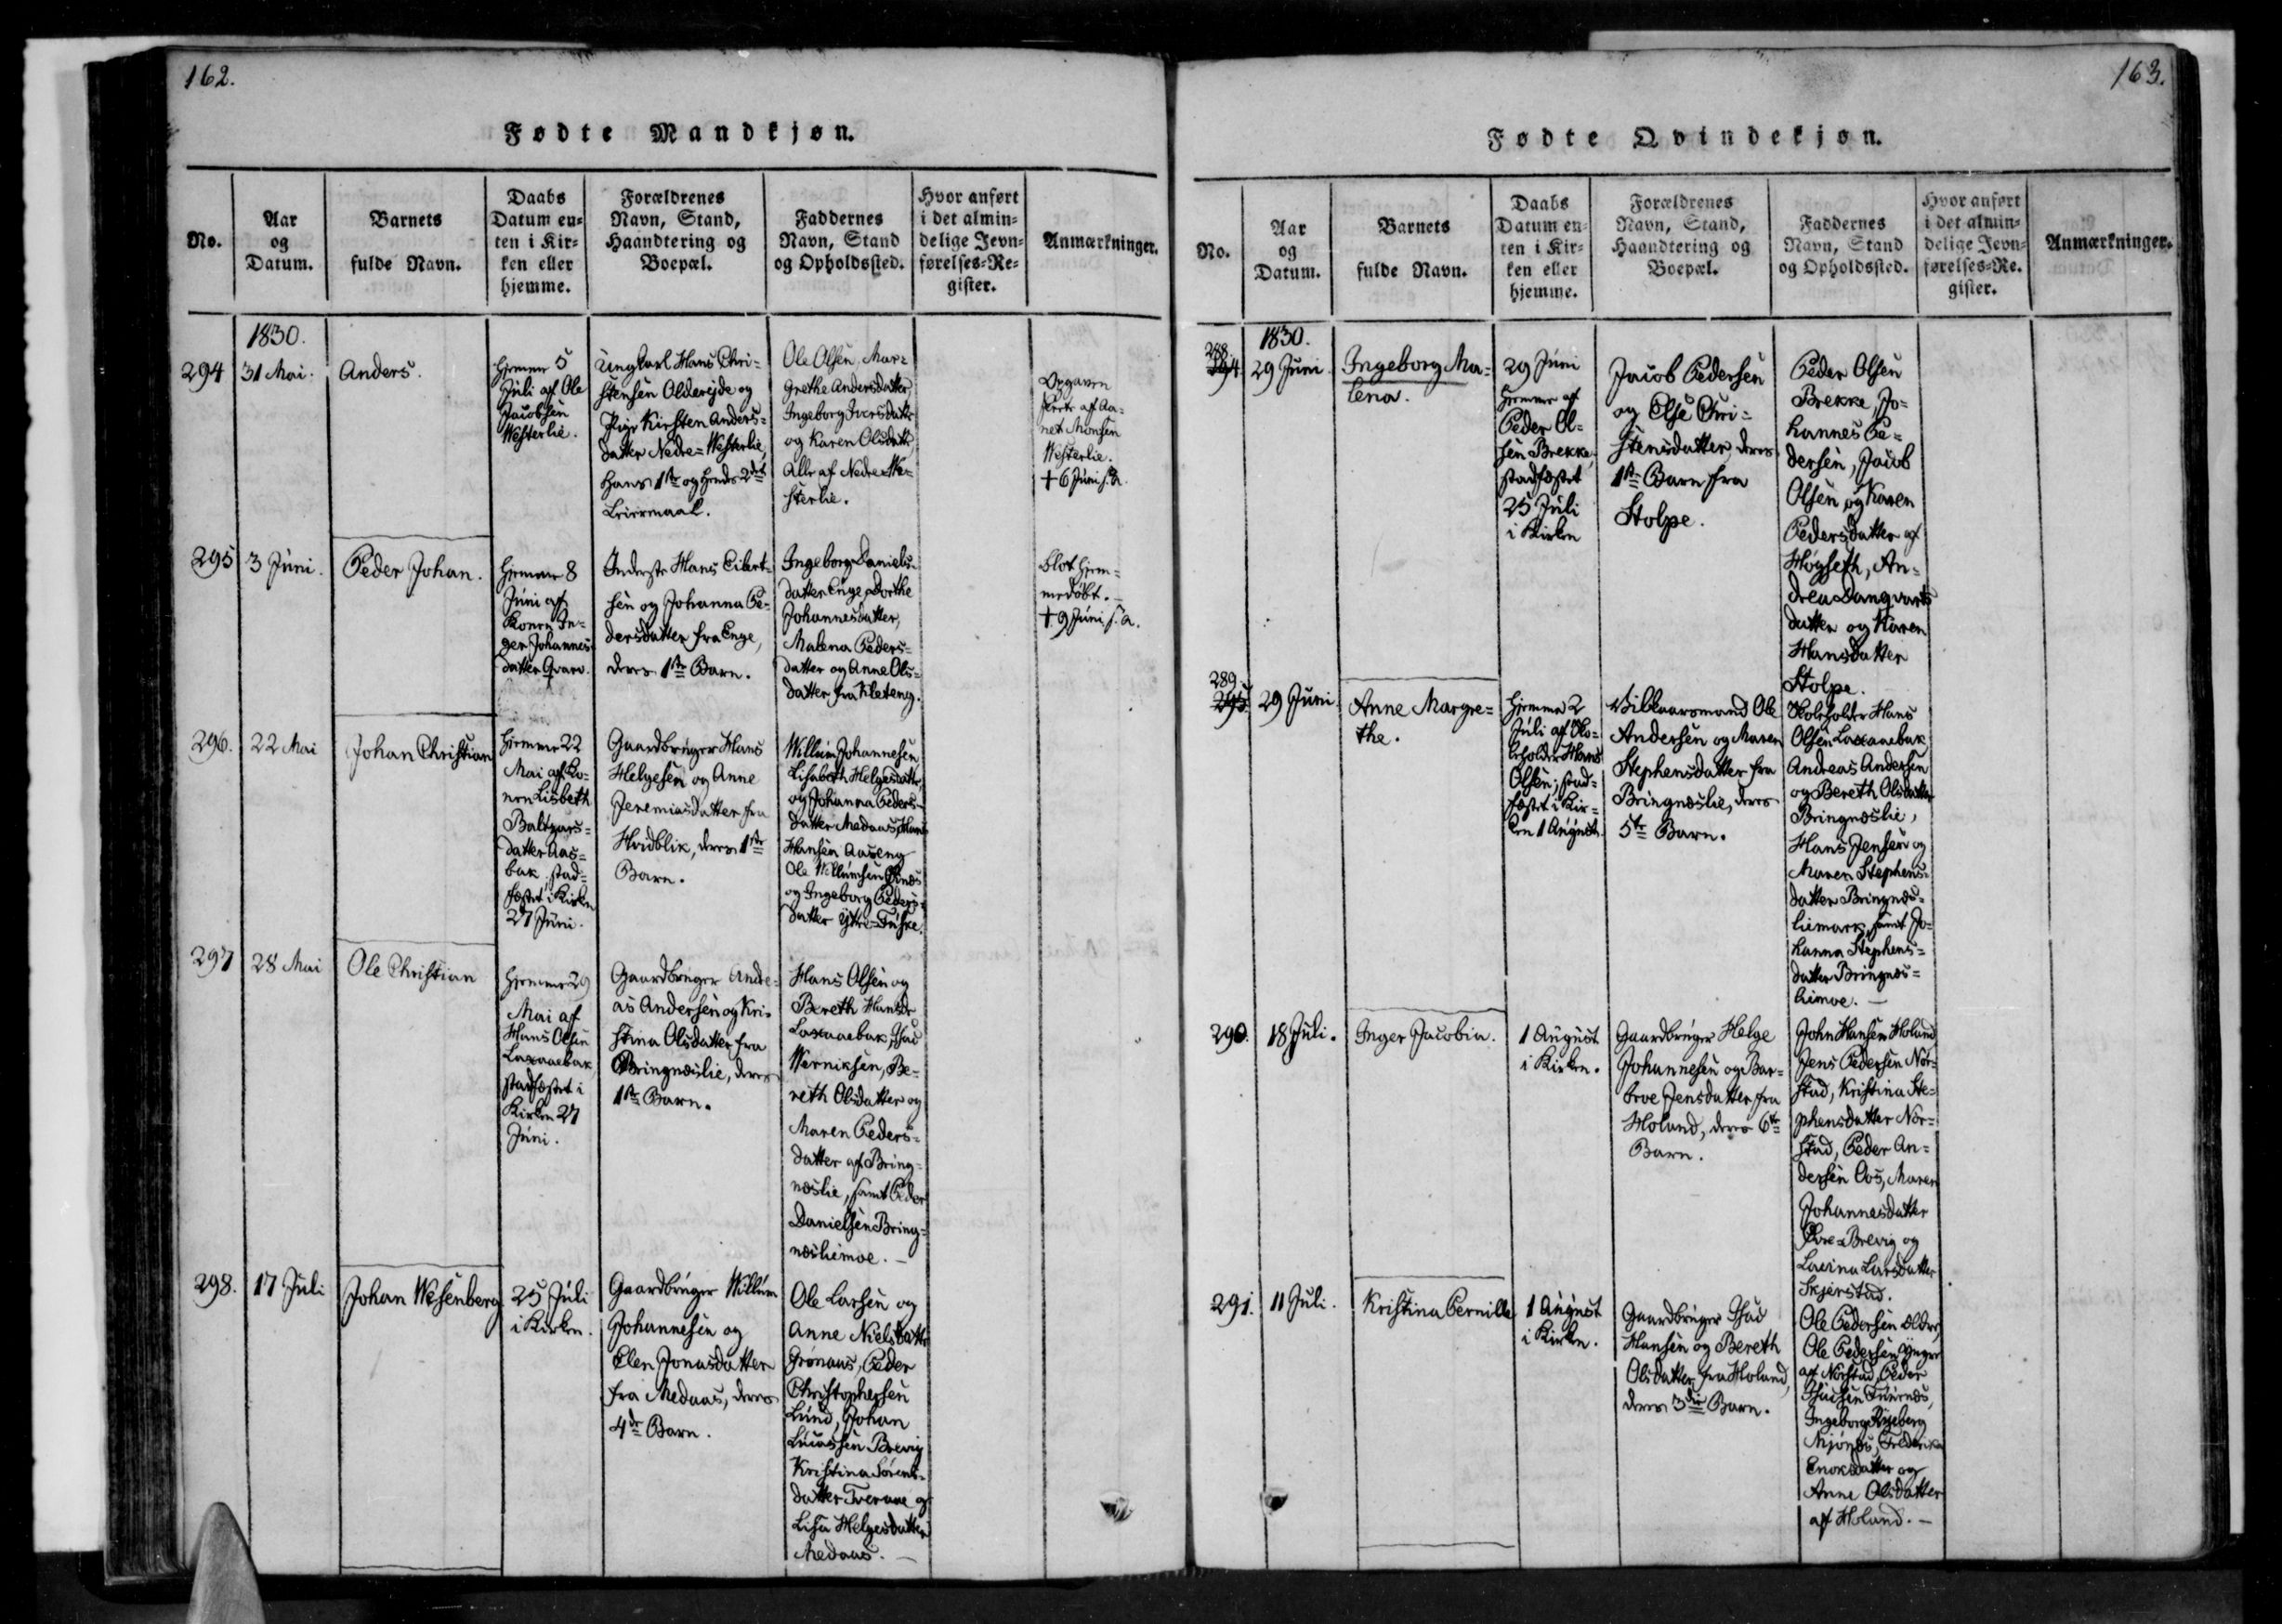 162.
Fødte Mandkjøn.
No.
Aar
og
Datum.
Barnets
fulde Navn.
Daabs
Datum en-
ten i Kir-
ken eller
hjemme.
Forældrenes
Navn, Stand,
Haandtering og
Boepæl.
Faddernes
Navn, Stand
og Opholdssted.
Hvor anført
i det almin-
delige Jevn-
førelses-Re-
gister.
Anmærkninger.
1830.
294
31 Mai.
Anders.
Hjemme 5
Juli af Ole
Jacobsen
Westerlie.
Ungkarl Hans Chri-
stensen Oldereide og
Pige Kirsten Anders-
datter Nedre-Westerlie,
Hans 1ste og Hendes 2det
Leiermaal.
Ole Olsen, Mar-
grethe Andersdatter,
Ingeborg Iversdatter
og Karen Olsdatter,
Alle af Nedre-We-
sterlie.
Opgaven
skrevet af Aa-
net Monsen
Westerlie.
† 6 Juni s. A.
295
3 Juni.
Peder Johan.
Hjemme 8
Juni af
Konen In-
ger Johannes-
datter Qvarv.
Inderste Hans Eilert-
sen og Johanna Pe-
dersdatter fra Enge,
deres 1ste Barn.
Ingeborg Daniels-
datter Enge, Dorthe
Johannesdatter,
Malena Peders-
datter og Anne Ols-
datter fra Kleteng.
blot hjem-
medøbt. -
† 9 Juni s. A.
296.
22 Mai
Johan Christian
Hjemme 22
Mai af Ko-
nen Lisbeth
Baltzars-
datter Aas-
bak, stad-
fæstet i Kirken
27 Juni.
Gaardbruger Hans
Helgesen og Anne
Jeremiasdatter fra
Hvidblik, deres 1ste
Barn.
Willum Johannesen
Lisabeth Helgesdatter
og Johanna Peders-
datter Medaas, Hans
Hansen Aaseng
Ole Willumsen
og Ingeborg Peders-
datter Yttre-Fuske.
297
28 Mai
Ole Christian
Hjemme 29
Mai af
Hans Olsen
Laxaaebak
stadfæstet i
Kirken 27
Juni.
Gaardbruger Andre-
as Andersen og Kri-
stina Olsdatter fra
Bringnæslie, deres
1ste Barn.
Hans Olsen og
Bereth Hansdr
Laxaaebak, Isac
Werniksen, Be-
reth Olsdatter og
Maren Peders-
datter af Bring-
næslie, samt Peder
Danielsen Bring-
næsliemoe. -
298.
17 Juli
Johan Wesenberg
25 Juli
i Kirken.
Gaardbruger Willum
Johannesen og
Elen Jonasdatter
fra Medaas, deres
4de Barn.
Ole Larsen og
Anne Nielsdatter
Grønaas, Peder
Christophersen
Lund, Johan
Lucassen Brevig
Kristina Sørens-
datter Tveraae og
Lisa Helgesdatter
Medaas. -
163.
Fødte Qvindekjøn.
No.
Aar
og
Datum.
Barnets
fulde Navn.
Daabs
Datum en-
ten i Kir-
ken eller
hjemme.
Forældrenes
Navn, Stand,
Haandtering og
Boepæl.
Faddernes
Navn, Stand
og Opholdssted.
Hvor anført
i det almin-
delige Jevn-
førelses-Re-
gister.
Anmærkninger.
1830.
288
294
29 Juni.
Ingeborg Ma-
lena.
29 Juni
hjemme af
Peder Ol-
sen Brekke,
stadfæstet
25 Juli
i Kirken
Jacob Pedersen
og Else Chri-
stensdatter, deres
1ste Barn fra
Stolpe.
Peder Olsen
Brekke, Jo-
hannes Pe-
dersen, Jacob
Olsen og Karen
Pedersdatter af
Høgseth, An-
drea Dangvarts
datter og Karen
Hansdatter
Stolpe.
289.
295
29 Juni
Anne Margre-
the.
Hjemme 2
Juli af Sko-
leholder Hans
Olsen, stad-
fæstet i Kir-
ken 1 August.
Vilkaarsmand Ole
Andersen og Maren
Stephensdatter fra
Bringnæslie, deres
5te Barn.
Skoleholder Hans
Olsen Laxaaebak
Andreas Andersen
og Bereth Olsdatter
Bringnæslie,
Hans Jensen og
Maren Stephens-
datter Bringnæs-
liemark, samt Jo-
hanna Stephens-
datter Bringnæs-
liemoe. -
290.
18 Juli.
Inger Jacobia.
1 August
i Kirken.
Gaardbruger Helge
Johannesen og Bar-
broe Jensdatter fra
Holand, deres 6te
Barn.
John Hansen Holand
Jens Pedersen Nor-
stad, Kristina Ste-
phensdatter Nor-
stad, Peder An-
dersen Oos, Maren
Johannesdatter
Øvre-Brevig og
Lavina Larsdatter
Skjerstad.
291.
11 Juli.
Kristina Pernille
1 August
i Kirken.
Gaardbruger Isac
Hansen og Bereth
Olsdatter fra Holand,
deres 3die Barn.
Ole Pedersen ældre,
Ole Pedersen Yngre
af Norstad, Peder
Isacsen Tuvnæs,
Ingeborg Rijeberg
Mjønæs, Frederica
Enoksdatter og
Anne Olsdatter
af Holand. -